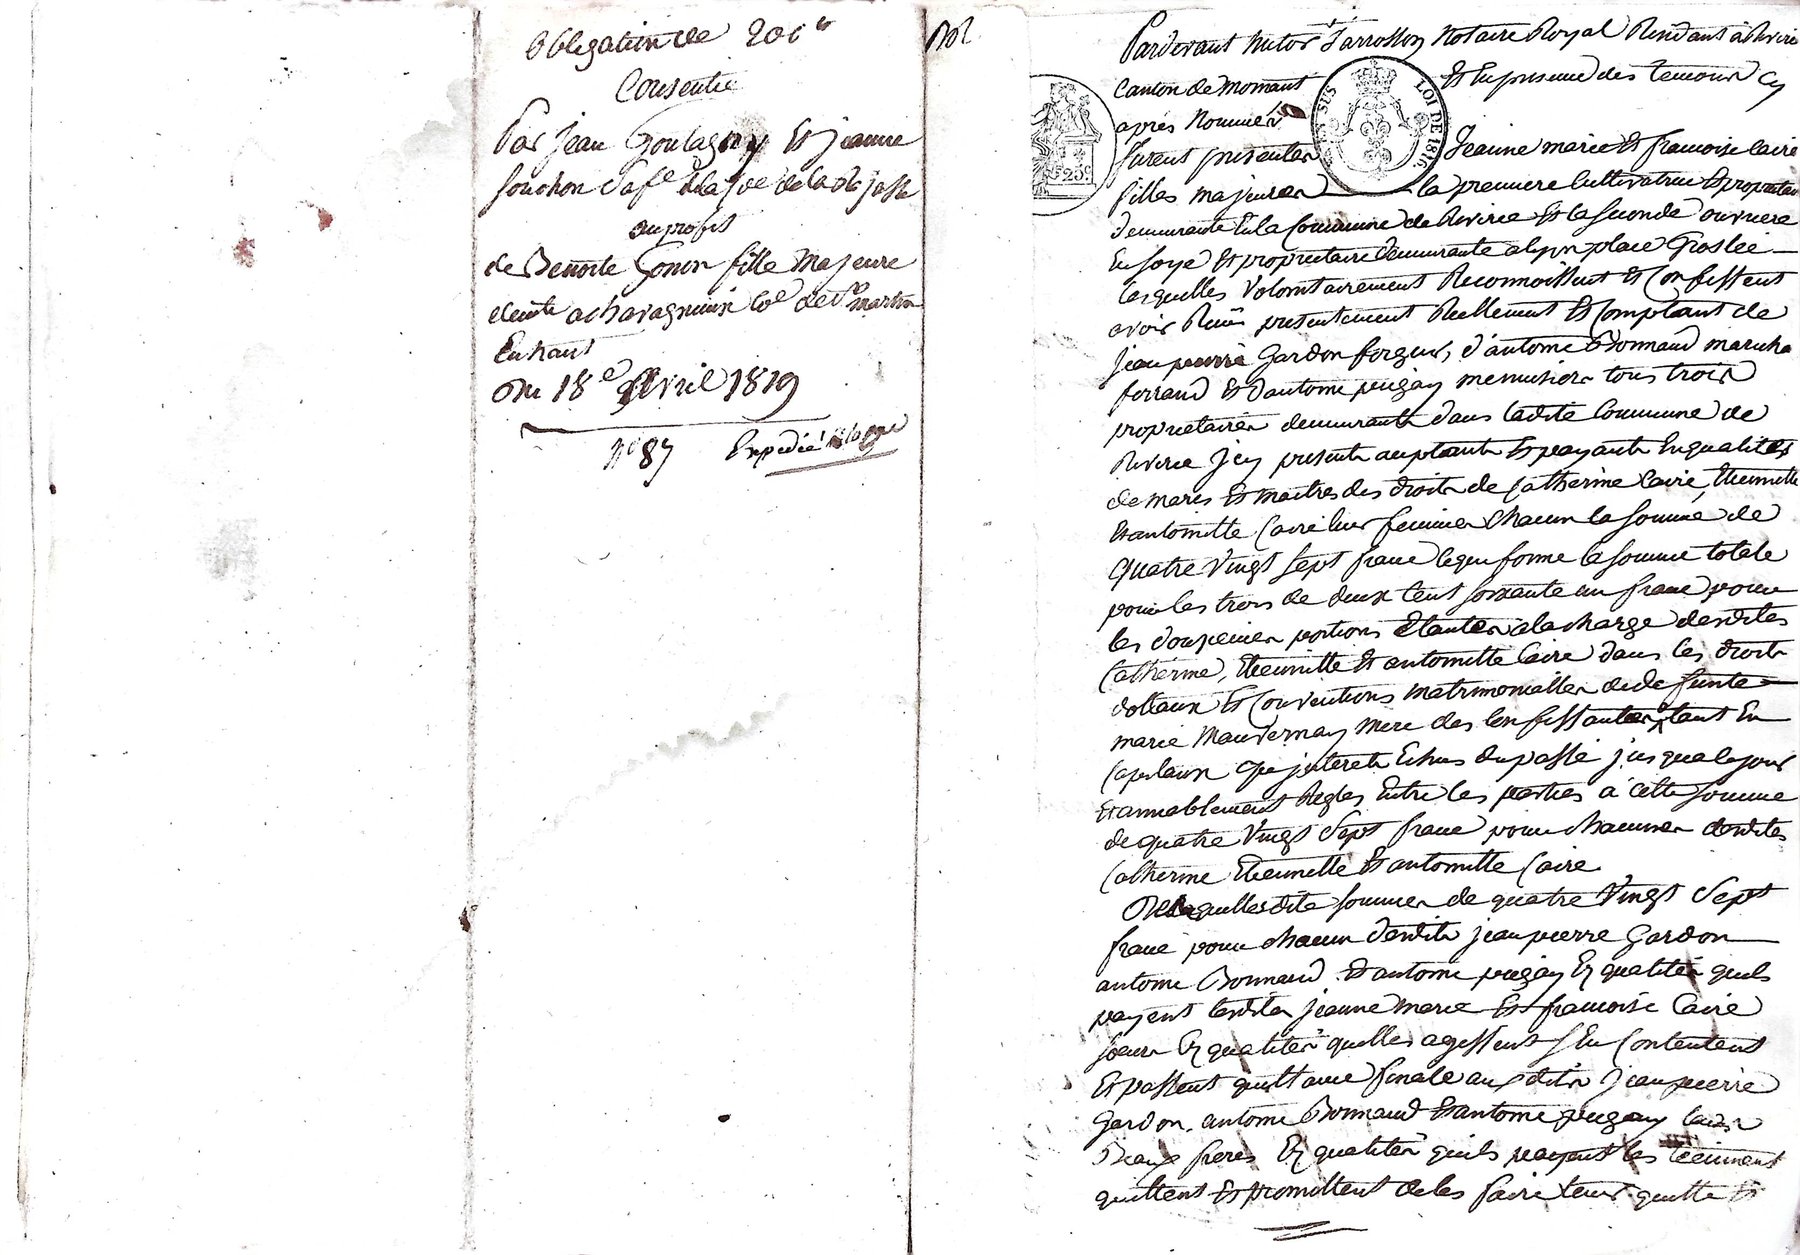 obligation de 200#
Consentie
Par jean Goulagny Et jeanne
souchon sa fe
au profit
de Benoite Gonon fille Majeure
demte a chavagnieux Coe de St martin
En haut
Du 18e Avril 1819
No 87 Expedié
Pardevant Me Notaire Royal Résidant à Riverie
Canton de Mornant Et En presence des temoins Cy
après Nommés
furent presentes Jeanne marie Et francoise Caire
filles majeures la premiere Cultivatrice Et proprietaire
demeurante En la Commune de Riverie Et la seconde ouvriere
En soye Et proprietaire demeurante a lyon place Groslée
lesquelles Volontairement Reconnoissent Et Confessent
avoir Recus presentement Reellement Et Comptant de
jean pierre Gardon forgeur, d'antoine Bonnand marecha
ferrand Et d'antoine pugay menuisier tous trois
proprietaires demeurants dans ladite Commune de
Riverie Jcy presents acceptants Et payants En qualités
de maris Et maitres des droits de Catherine Caire, Etiennette
Et antoinette Caire leurs femmes Chacun la somme de
quatre Vingt sept francs ce qui forme la somme totale
pour les trois de deux Cent soixante un francs pour
les portions Etantes a la charge desdites
Catherine, Etiennette Et antoinette Caire dans les droits
dotaux Et Conventions matrimonialles de defunte
marie Mauvernay mere des Confessantes tant En
Capitaux que jnterets Echus du passé jusqua ce jour
Et amiablement Regles Entre les parties à cette somme
de quatre Vingt sept francs pour chacunes desdites
Catherine Etiennette Et antoinette Caire
Desquelles dite sommes de quatre Vingt sept
francs pour chacun desdits jean pierre Gardon
antoine Bonnand Et antoine pugay Es qualités quils
payent lesdites jeanne marie Et francoise Caire
soeurs Es qualités quelles agissent s'En Contentent
Et passent quittance finale auxdits jean pierre
Gardon, antoine Bonnand Et antoine pugay leurs
Beaux freres Es qualités quils payent les tiennent
quittent Et promettent de les faire tenir quitte Et
LOI DE 1816
25c